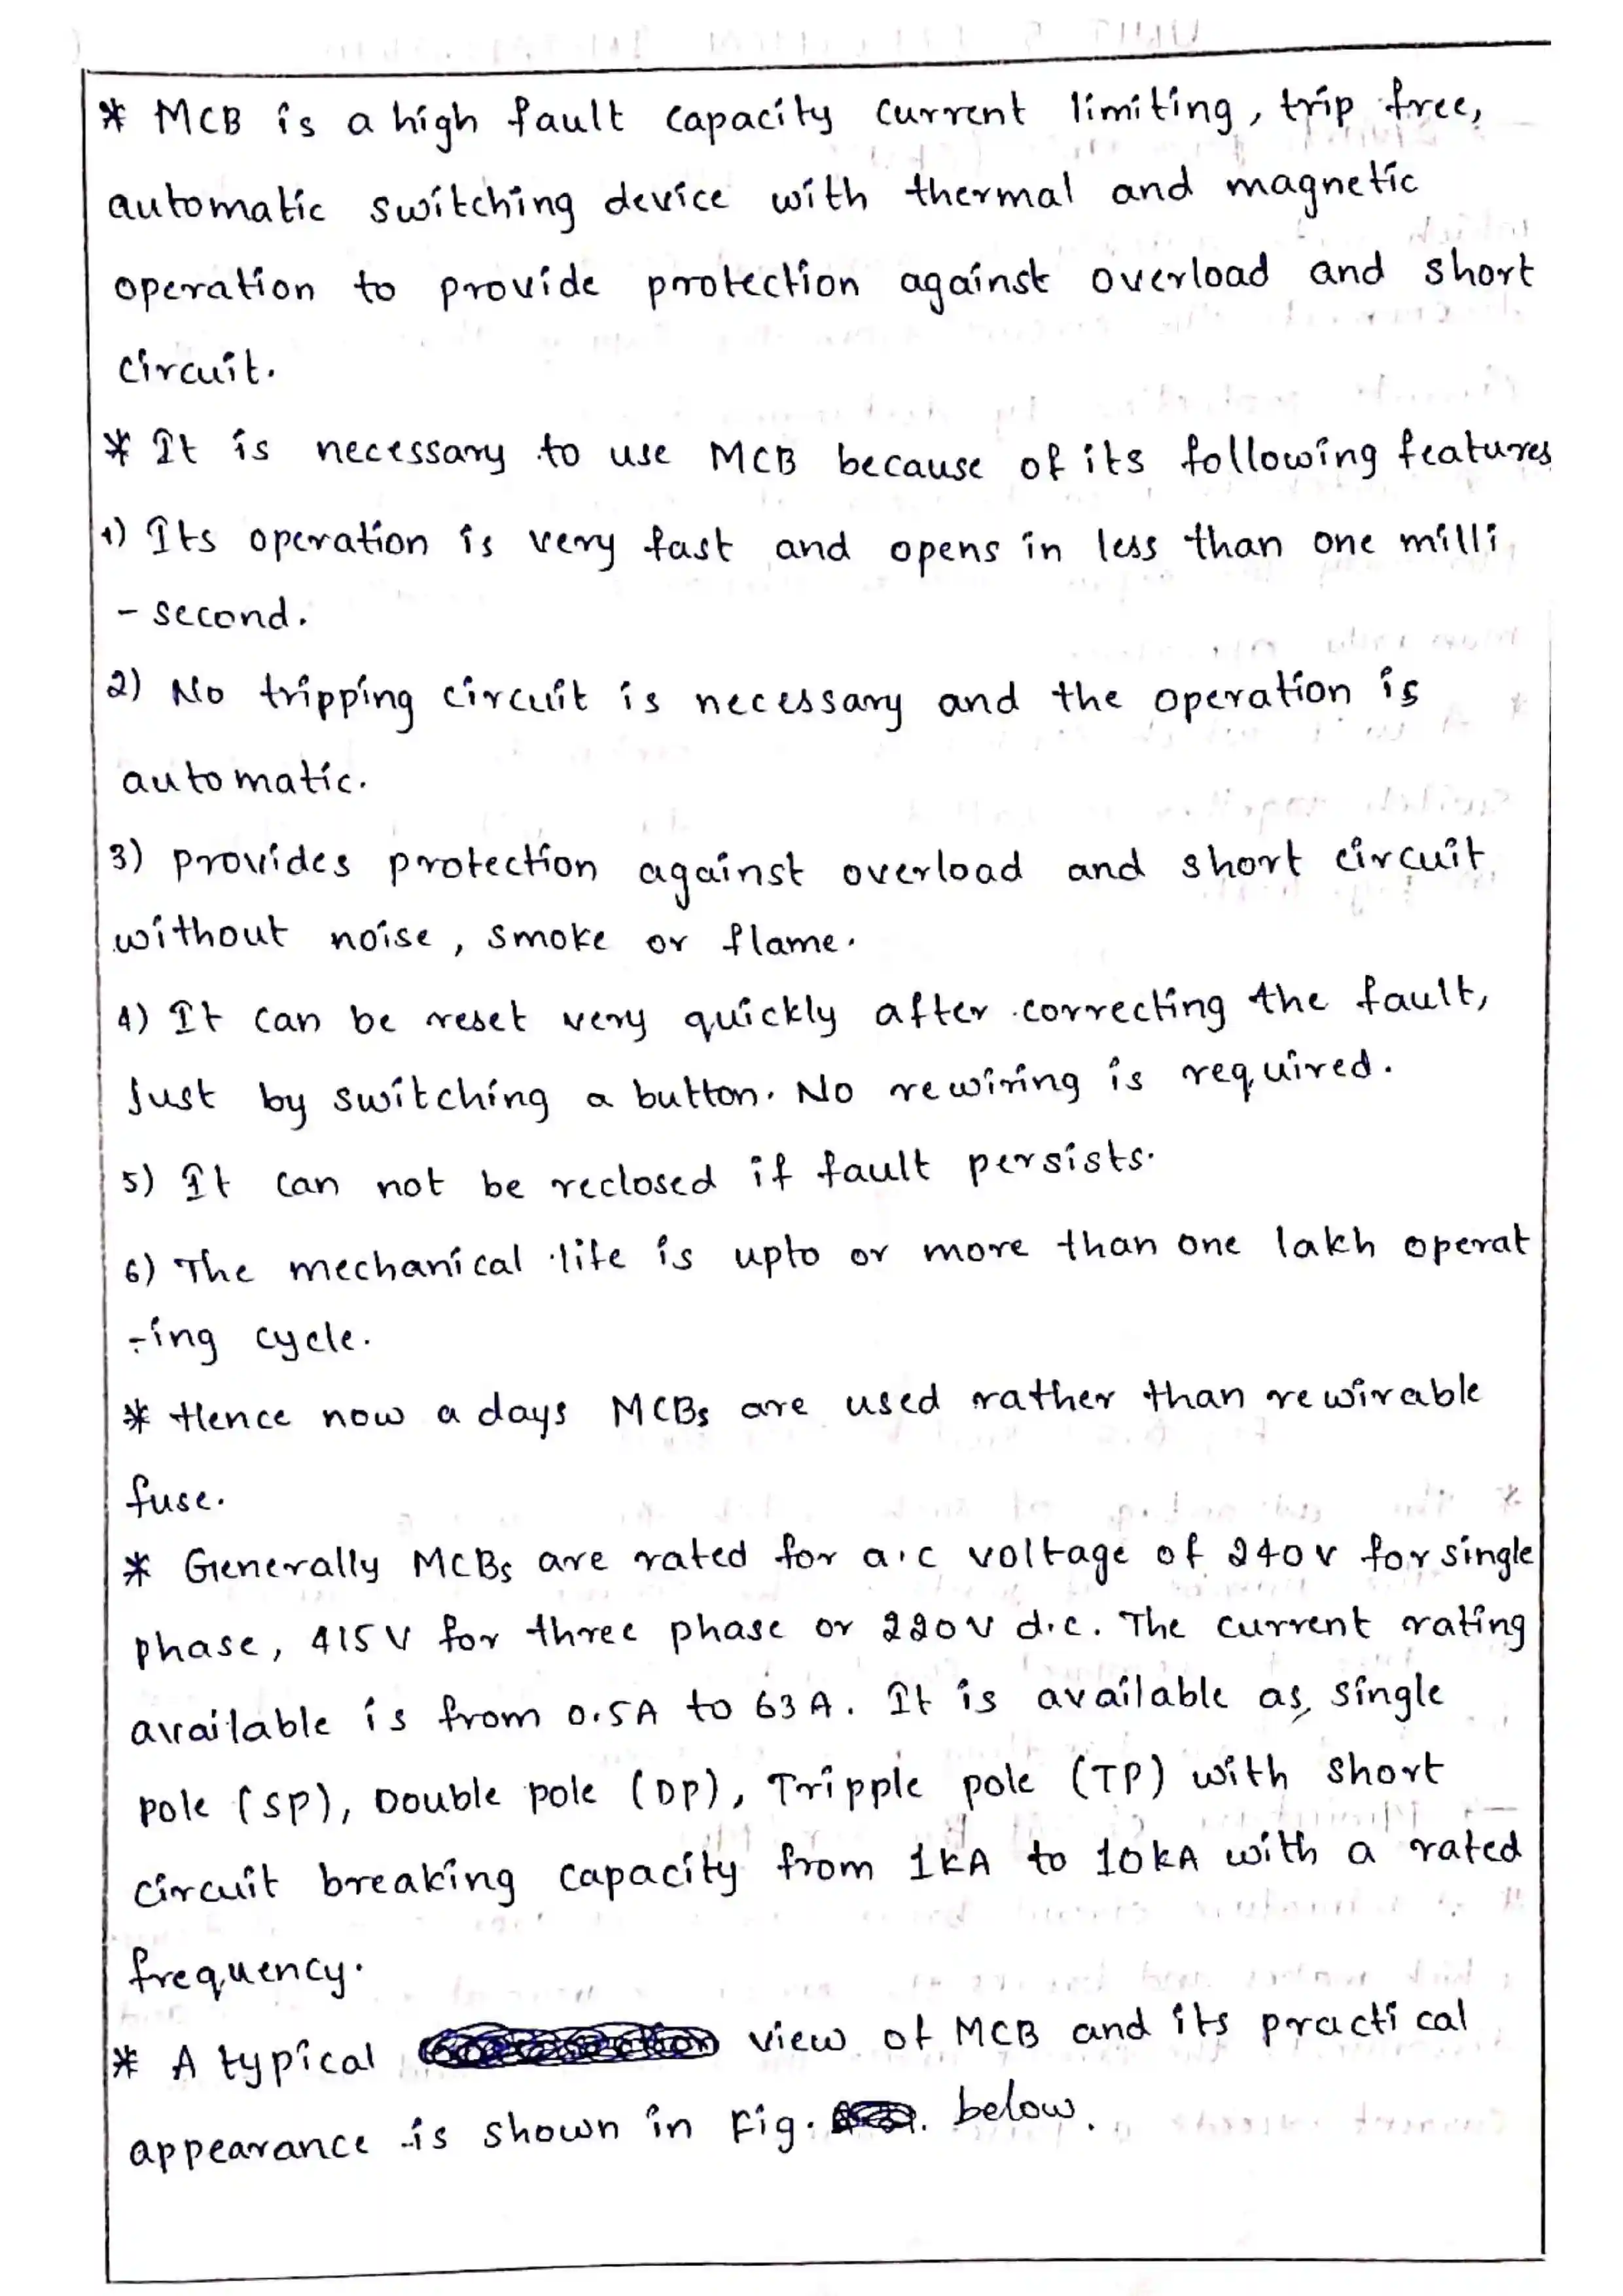 * MCB is a high fault capacity current limiting, trip free,
automatic switching device with thermal and magnetic
operation to provide protection against overload and short
circuit.
* It is necessary to use MCB because of its following features
1) Its operation is very fast and opens in less than one milli
- second.
2) No tripping circuit is necessary and the operation is
automatic.
3) provides protection against overload and short circuit
without noise, smoke or flame.
4) It can be reset very quickly after correcting the fault,
Just by switching a button. No rewiring is required.
5) It can not be reclosed if fault persists.
6) The mechanical life is upto or more than one lakh operat
-ing cycle.
* Hence now a days MCBs are used rather than rewirable
fuse.
* Generally MCBs are rated for a.c voltage of 240 v for single
phase, 415 V for three phase or 220 V d.c. The current rating
available is from 0.5A to 63 A. It is available as, single
pole (SP), Double pole (DP), Tripple pole (TP) with short
circuit breaking capacity from 1kA to 10kA with a rated
frequency.
* A typical view of MCB and its practical
appearance is shown in Fig. below.